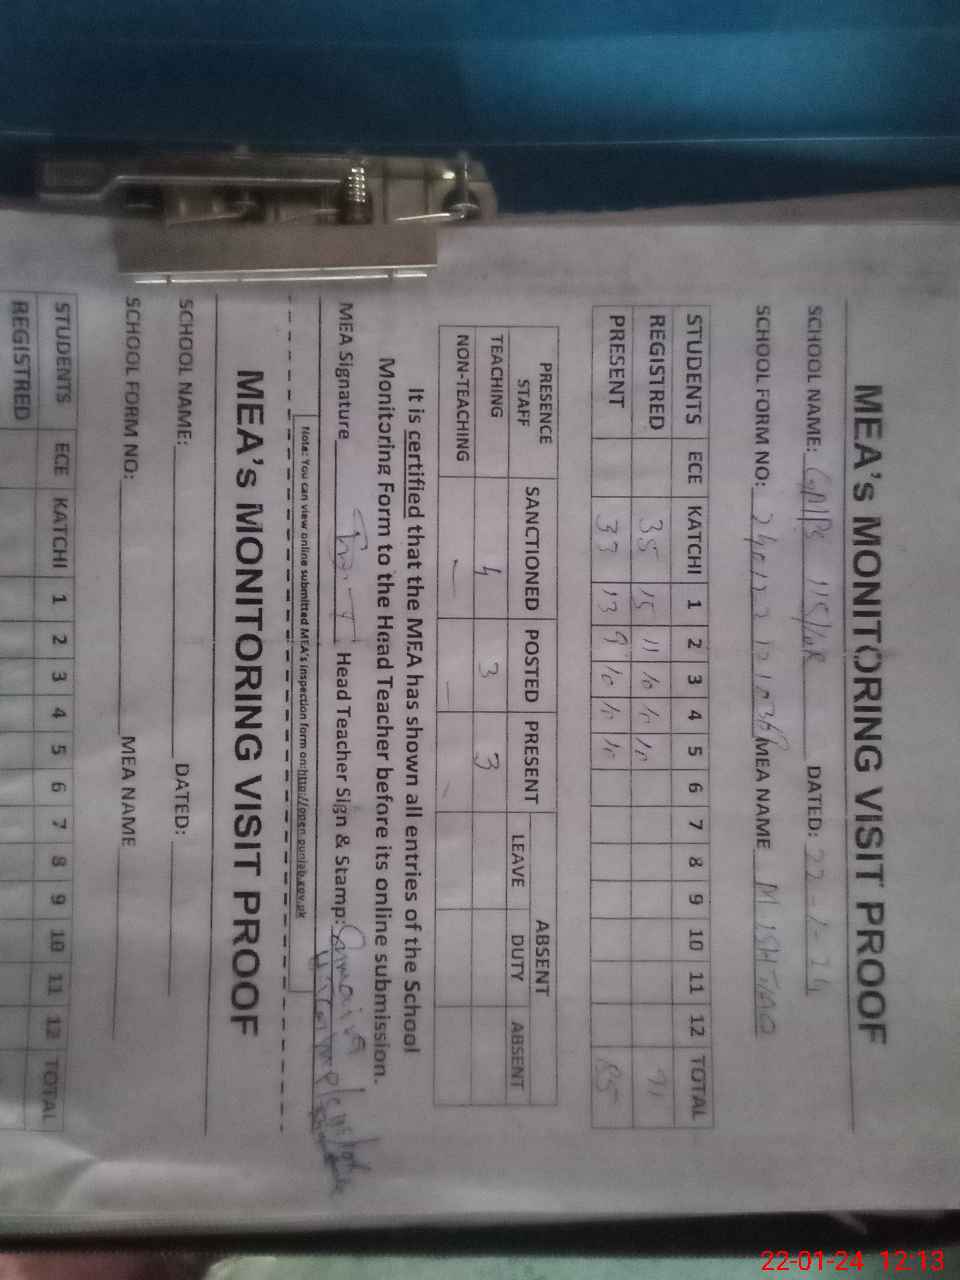 MEA's MONITORING VISIT PROOF
SCHOOL NAME: DATED: 22-1-24
SCHOOL FORM NO: MEA NAME M ISHTAQ
STUDENTS ECE KATCHI 1 2 3 4 5 6 7 8 9 10 11 12 TOTAL
REGISTRED 35 15 11 10 10 10 91
PRESENT 33 13 9 10 10 10 85
PRESENCE STAFF SANCTIONED POSTED PRESENT ABSENT
LEAVE DUTY ABSENT
TEACHING 4 3 3
NON-TEACHING — — -
It is certified that the MEA has shown all entries of the School
Monitoring Form to the Head Teacher before its online submission.
MEA Signature Head Teacher Sign & Stamp:
Note: You can view online submitted MEA's inspection form on:http://open.punjab.gov.pk
MEA's MONITORING VISIT PROOF
SCHOOL NAME: DATED:
SCHOOL FORM NO: MEA NAME
STUDENTS ECE KATCHI 1 2 3 4 5 6 7 8 9 10 11 12 TOTAL
REGISTRED
22-01-24 12:13